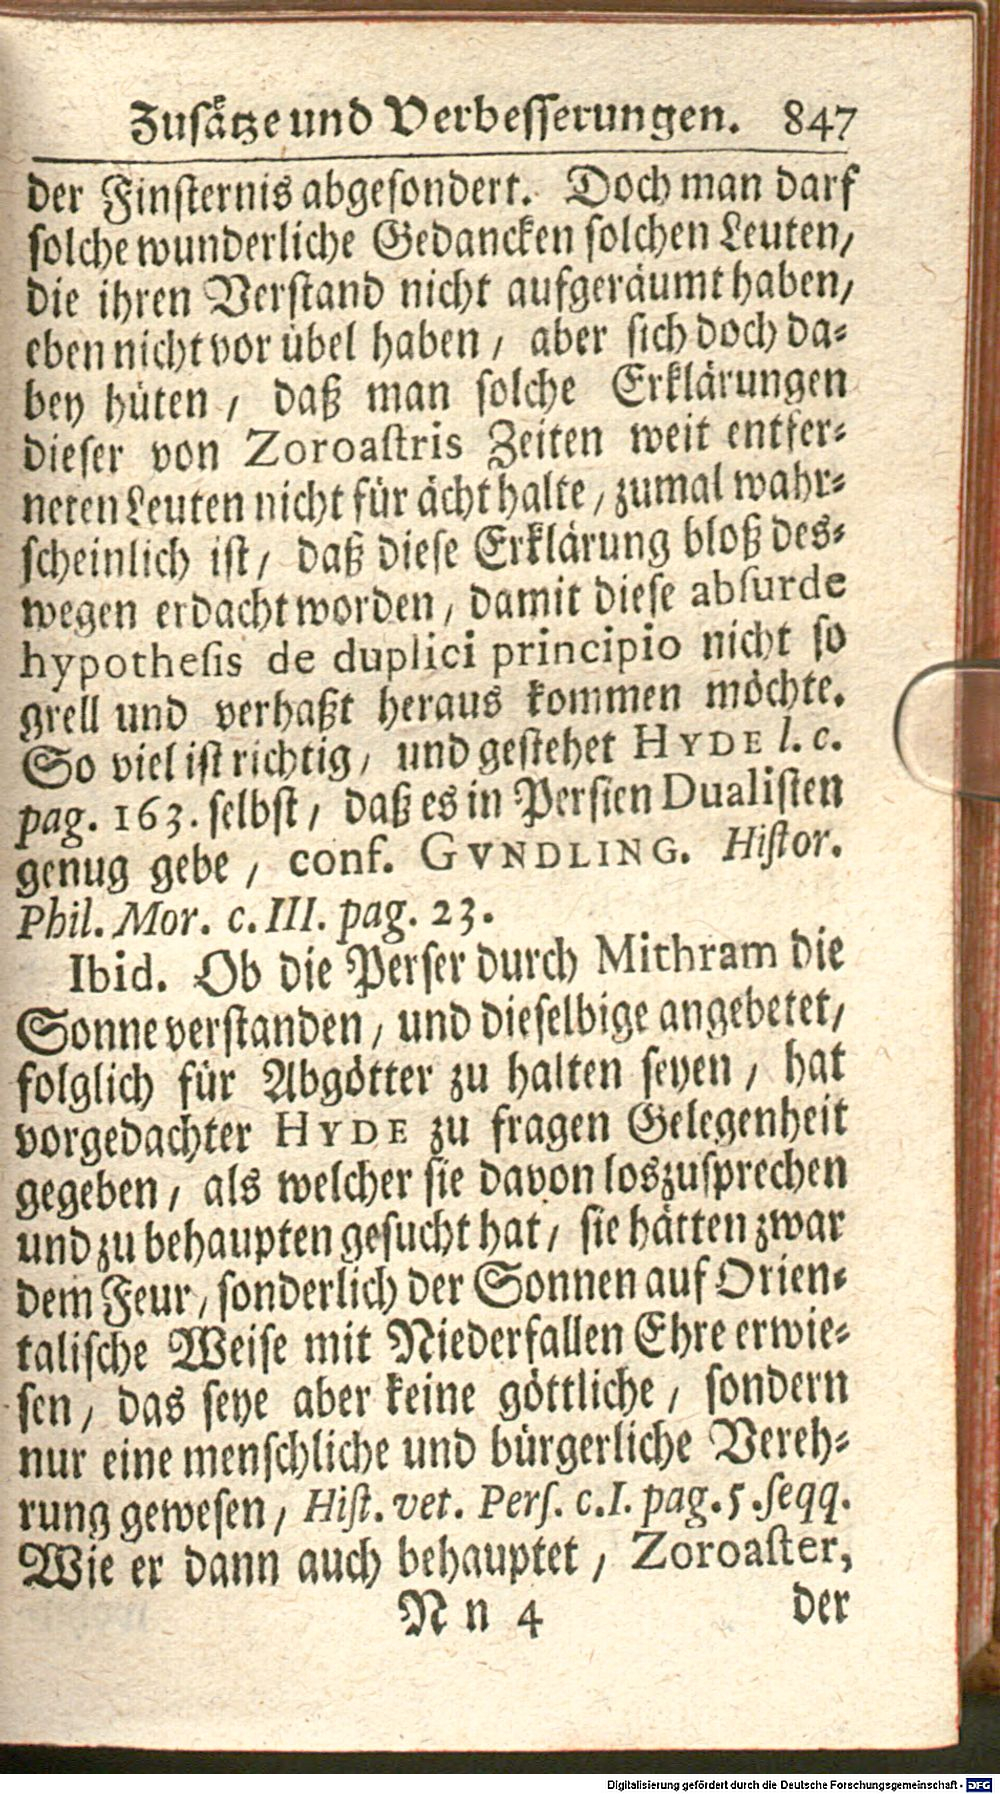 Zusätze und Verbesserungen. 847
der Finsternis abgesondert. Doch man darf
solche wunderliche Gedancken solchen Leuten/
die ihren Verstand nicht aufgeräumt haben/
eben nicht vor übel haben / aber sich doch da-
bey hüten / daß man solche Erklärungen
dieser von Zoroastris Zeiten weit entfer-
neten Leuten nicht für ächt halte / zumal wahr-
scheinlich ist / daß diese Erklärung bloß des-
wegen erdacht worden / damit diese absurde
hypothesis de duplici principio nicht so
grell und verhaßt heraus kommen möchte.
So viel ist richtig / und gestehet HYDE l. c.
pag. 163. selbst / daß es in Persien Dualisten
genug gebe / conf. GVNDLING. Histor.
Phil. Mor. c. III. pag. 23.
Ibid. Ob die Perser durch Mithram die
Sonne verstanden / und dieselbige angebetet/
folglich für Abgötter zu halten seyen / hat
vorgedachter HYDE zu fragen Gelegenheit
gegeben / als welcher sie davon loszusprechen
und zu behaupten gesucht hat / sie hätten zwar
dem Feur / sonderlich der Sonnen auf Orien-
talische Weise mit Niederfallen Ehre erwie-
sen / das seye aber keine göttliche / sondern
nur eine menschliche und bürgerliche Vereh-
rung gewesen / Hist. vet. Pers. c. I. pag. 5. seqq.
Wie er dann auch behauptet / Zoroaster,
N n 4 der
Digitalisierung gefördert durch die Deutsche Forschungsgemeinschaft - DFG